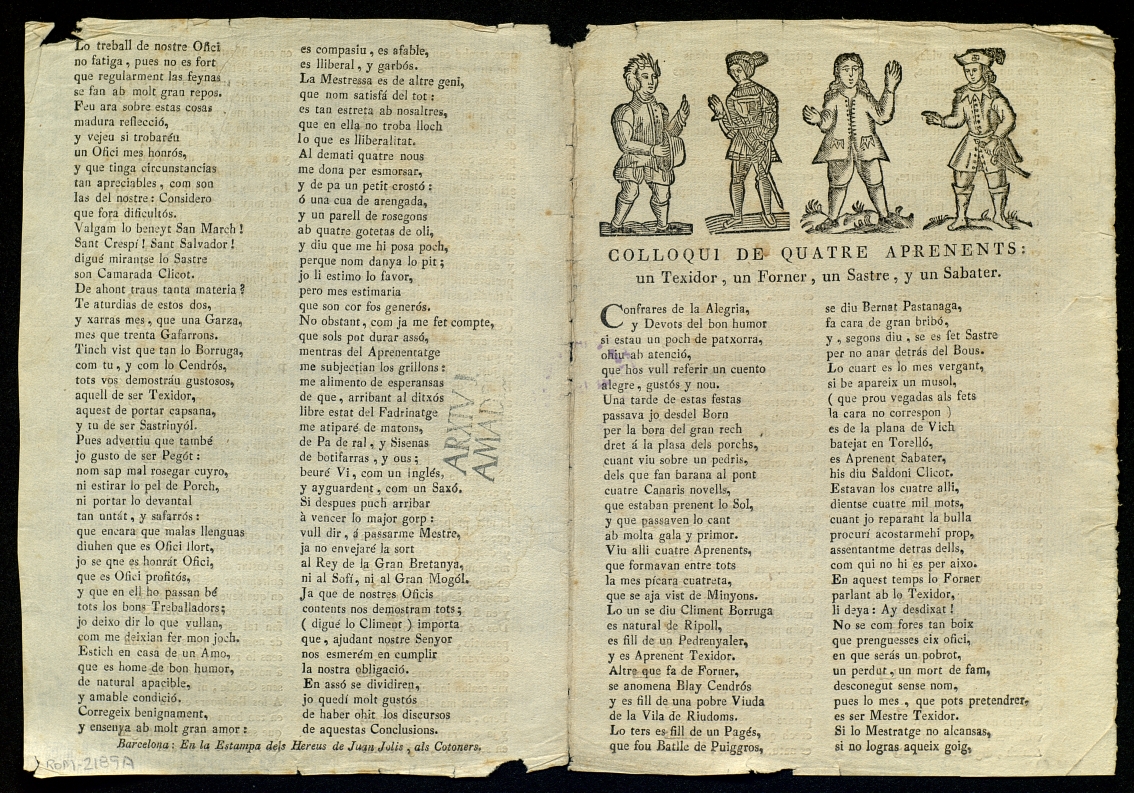 Lo treball de nostre Ofici
no fatiga, pues no es fort
que regularment las feynas
se fan ab molt gran repos.
Feu ara sobre estas cosas
madura reflecció,
y vejeu si trobaréu
un Ofici mes honrós,
y que tinga circunstancias
tan apreciables, com son
las del nostre: Considero
que fora dificultós.
Valgam lo beneyt San March!
Sant Crespí! Sant Salvador!
digué mirantse lo Sastre
son Camarada Clicot.
De ahont traus tanta materia?
Te aturdias de estos dos,
y xarras mes, que una Garza,
mes que trenta Gafarrons.
Tinch vist que tan lo Borruga,
com tu, y com lo Cendrós,
tots vos demostráu gustosos,
aquell de ser Texidor,
aquest de portar capsana,
y tu de ser Sastrinyól.
Pues advertiu que també
jo gusto de ser Pegót:
nom sap mal rosegar cuyro,
ni estirar lo pel de Porch,
ni portar lo devantal
tan untát, y safarrós:
que encara que malas llenguas
diuhen que es Ofici llort,
jo se que es honrát Ofici,
que es Ofici profitós,
y que en ell ho passan bé
tots los bons Treballadors;
jo deixo dir lo que vullan,
com me deixian fer mon joch.
Estich en casa de un Amo,
que es home de bon humor,
de natural apacible,
y amable condició.
Corregeix benignament,
y ensenya ab molt gran amor:
es compasiu, es afable,
es lliberal, y garbós.
La Mestressa es de altre geni,
que nom satisfá del tot:
es tan estreta ab nosaltres,
que en ella no troba lloch
lo que es lliberalitat.
Al demati quatre nous
me dona per esmorsar,
y de pa un petit crostó:
ó una cua de arengada,
y un parell de rosegons
ab quatre gotetas de oli,
y diu que me hi posa poch,
perque nom danya lo pit;
jo li estimo lo favor,
pero mes estimaria
que son cor fos generós.
No obstant, com ja me fet compte,
que sols pot durar assó,
mentras del Aprenentatge
me subjectian los grillons:
me alimento de esperansas
de que, arribant al ditxós
libre estat del Fadrinatge
me atiparé de matons,
de Pa de ral, y Sisenas
de botifarras, y ous;
beuré Vi, com un inglés,
y ayguardent, com un Saxó.
Si despues puch arribar
à vencer lo major gorp:
vull dir, á passarme Mestre,
ja no envejaré la sort
al Rey de la Gran Bretanya,
ni al Sofí, ni al Gran Mogól.
Ja que de nostres Oficis
contents nos demostram tots;
( digué lo Climent ) importa
que, ajudant nostre Senyor
nos esmerém en cumplir
la nostra obligació.
En assó se dividiren,
jo quedí molt gustós
de haber ohit los discursos
de aquestas Conclusions.
Barcelona: En la Estampa dels Hereus de Juan Jolis, als Cotoners.
ROM-2189A
ARXIU
COLLOQUI DE QUATRE APRENENTS:
un Texidor, un Forner, un Sastre, y un Sabater.
Confrares de la Alegria,
y Devots del bon humor
si estau un poch de patxorra,
ohiu ab atenció,
que hos vull referir un cuento
alegre, gustós y nou.
Una tarde de estas festas
passava jo desdel Born
per la bora del gran rech
dret á la plasa dels porchs,
cuant viu sobre un pedris,
dels que fan barana al pont
cuatre Canaris novells,
que estaban prenent lo Sol,
y que passaven lo cant
ab molta gala y primor.
Viu alli cuatre Aprenents,
que formavan entre tots
la mes pícara cuatreta,
que se aja vist de Minyons.
Lo un se diu Climent Borruga
es natural de Ripoll,
es fill de un Pedrenyaler,
y es Aprenent Texidor.
Altre que fa de Forner,
se anomena Blay Cendrós
y es fill de una pobre Viuda
de la Vila de Riudoms.
Lo ters es fill de un Pagés,
que fou Batlle de Puiggros,
se diu Bernat Pastanaga,
fa cara de gran bribó,
y, segons diu, se es fet Sastre
per no anar detrás del Bous.
Lo cuart es lo mes vergant,
si be apareix un musol,
( que prou vegadas als fets
la cara no correspon )
es de la plana de Vich
batejat en Torelló,
es Aprenent Sabater,
his diu Saldoni Clicot.
Estavan los cuatre alli,
dientse cuatre mil mots,
cuant jo reparant la bulla
procurí acostarmehi prop,
assentantme detras dells,
com qui no hi es per aixo.
En aquest temps lo Forner
parlant ab lo Texidor,
li deya: Ay desdixat!
No se com fores tan boix
que prenguesses eix ofici,
en que serás un pobrot,
un perdut, un mort de fam,
desconegut sense nom,
pues lo mes, que pots pretendrer,
es ser Mestre Texidor.
Si lo Mestratge no alcansas,
si no logras aqueix goig,